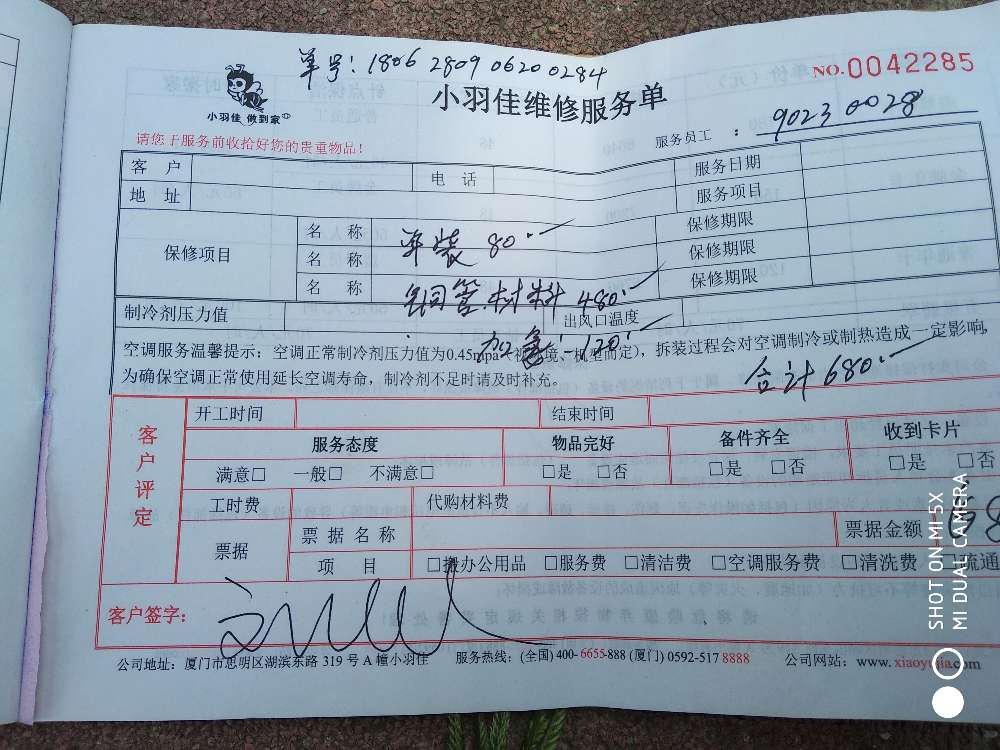 单号:1806 2809 0620 0284
NO.0042285
小羽佳 做到家
小羽佳维修服务单
请您于服务前收拾好您的贵重物品!
服务员工 : 9023 0028
客 户 电 话 服务日期
地 址 服务项目
保修项目 名 称 单装 80.- 保修期限
名 称 保修期限
名 称 铜管.材料 480.- 保修期限
制冷剂压力值 出风口温度
加氟:120.-
空调服务温馨提示:空调正常制冷剂压力值为0.45mpa(视环境、机型而定),拆装过程会对空调制冷或制热造成一定影响,
为确保空调正常使用延长空调寿命,制冷剂不足时请及时补充。
合计680.-
客户评定
开工时间 结束时间
服务态度 物品完好 备件齐全 收到卡片
满意□ 一般□ 不满意□ □是 □否 □是 □否 □是 □否
工时费 代购材料费
票据 票据名称 票据金额 68
项 目 □搬办公用品 □服务费 □清洁费 □空调服务费 □清洗费 □疏通
客户签字:
公司地址:厦门市思明区湖滨东路 319 号 A 幢小羽佳 服务热线:(全国) 400-6655-888 (厦门) 0592-517 8888 公司网站:www.xiaoyujia.com
SHOT ON MI 5X
MI DUAL CAMERA